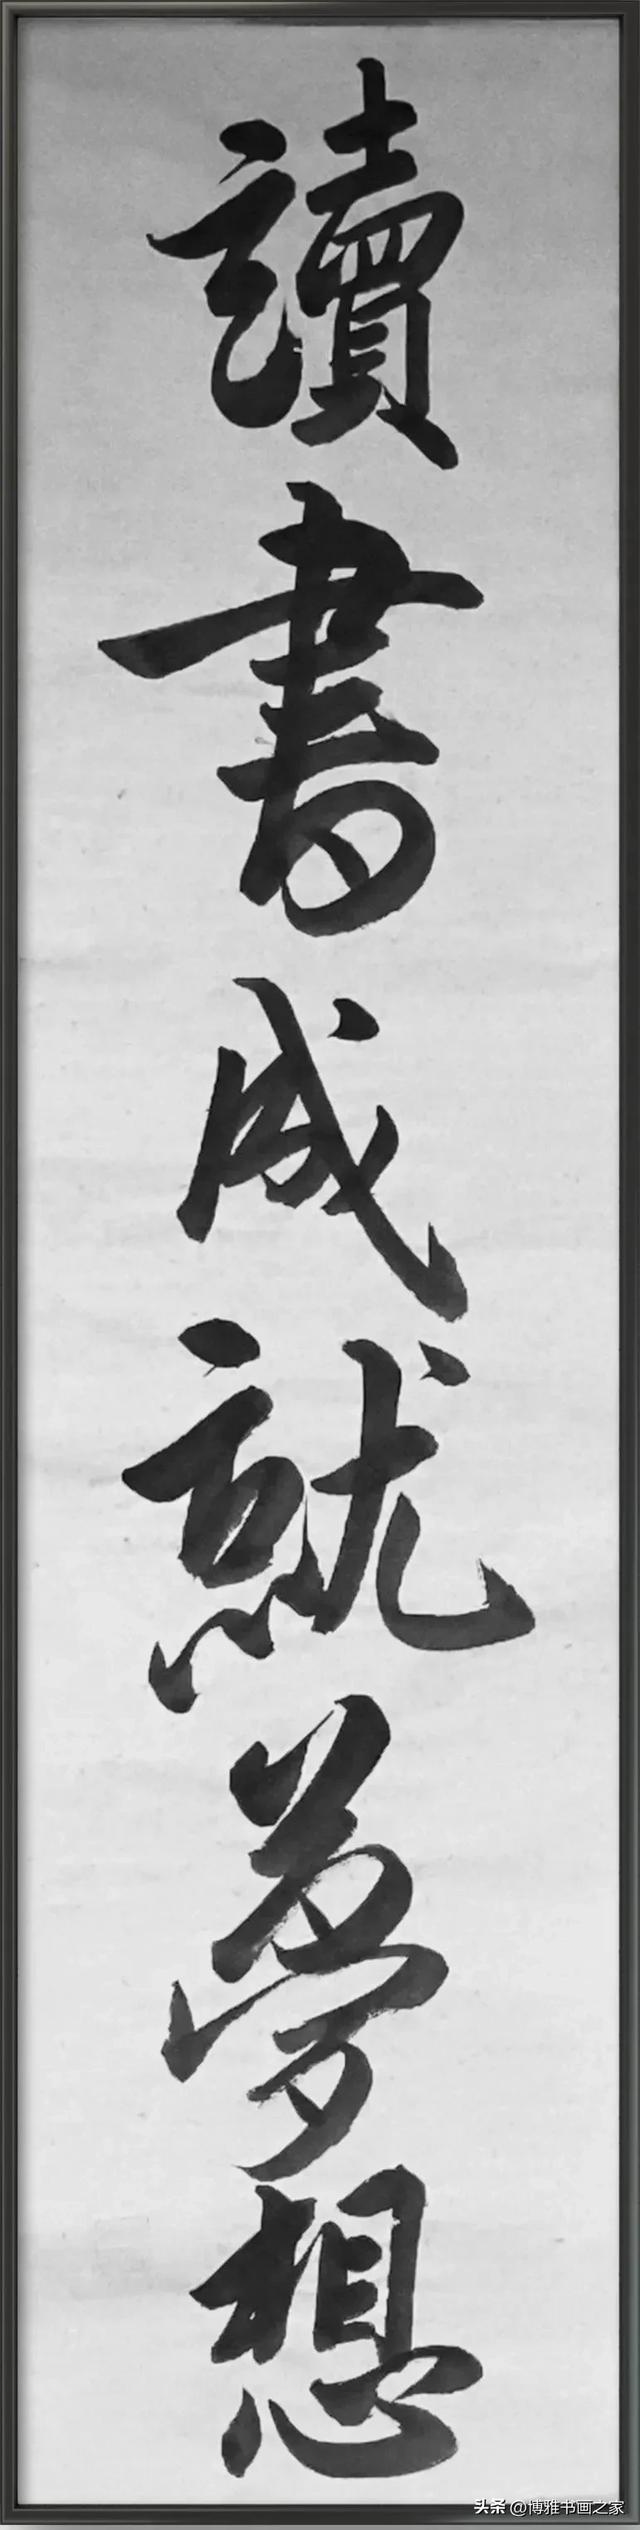 讀書成就夢想
头条 @博雅书画之家